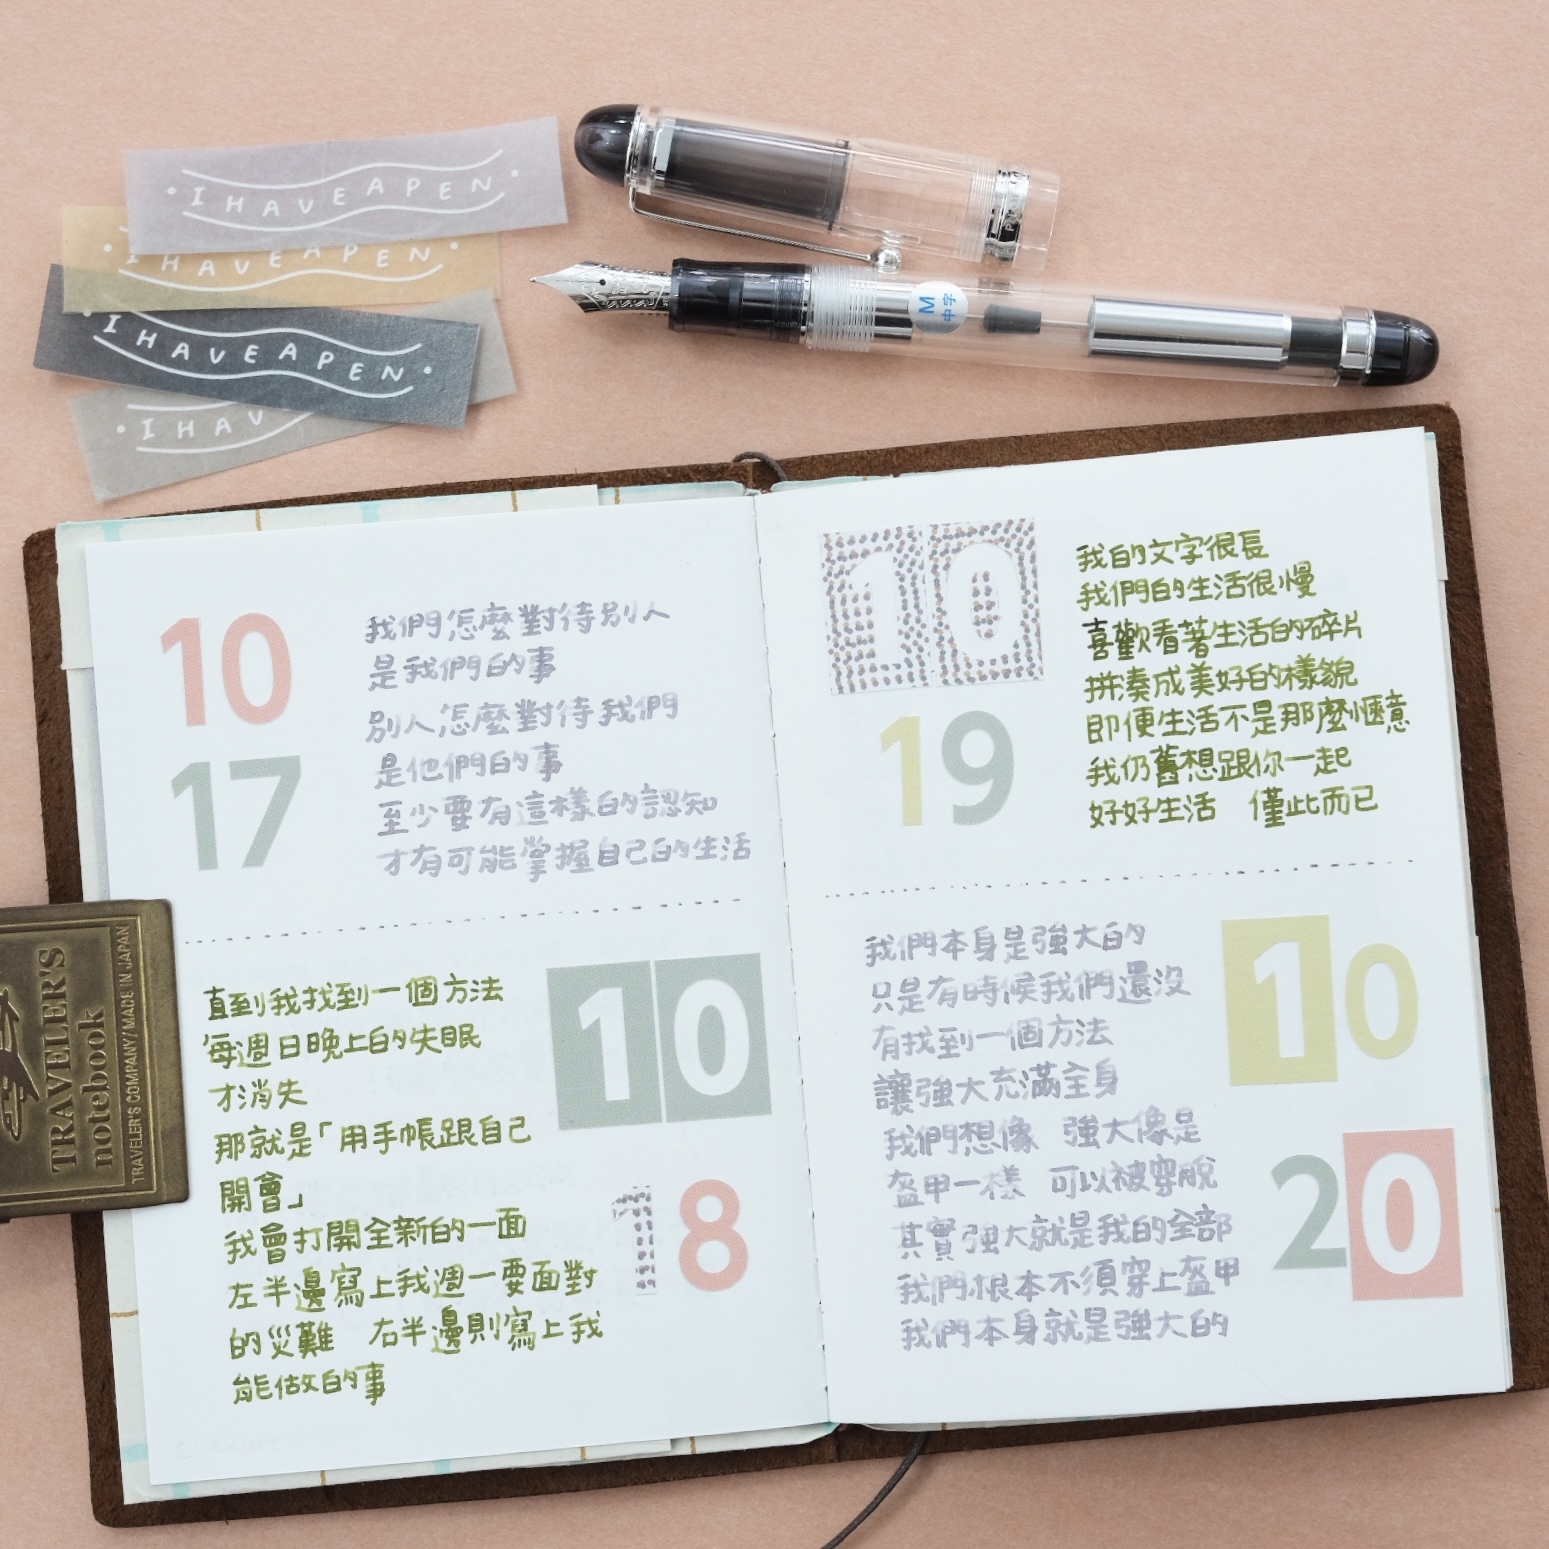 I HAVE A PEN
I HAVE A PEN
I HAVE A PEN
I HAV
M
中字
10
17
我們怎麼對待別人
是我們的事
別人怎麼對待我們
是他們的事
至少要有這樣的認知
才有可能掌握自己的生活
10
18
直到我找到一個方法
每週日晚上的失眠
才消失
那就是「用手帳跟自己
開會」
我會打開全新的一面
左半邊寫上我週一要面對
的災難 右半邊則寫上我
能做的事
10
19
我的文字很長
我們的生活很慢
喜歡看著生活的碎片
拼湊成美好的樣貌
即便生活不是那麼愜意
我仍舊想跟你一起
好好生活 僅此而已
10
20
我們本身是強大的
只是有時候我們還沒
有找到一個方法
讓強大充滿全身
我們想像 強大像是
盔甲一樣 可以被穿脫
其實強大就是我的全部
我們根本不須穿上盔甲
我們本身就是強大的
TRAVELER'S
notebook
TRAVELER'S COMPANY/MADE IN JAPAN